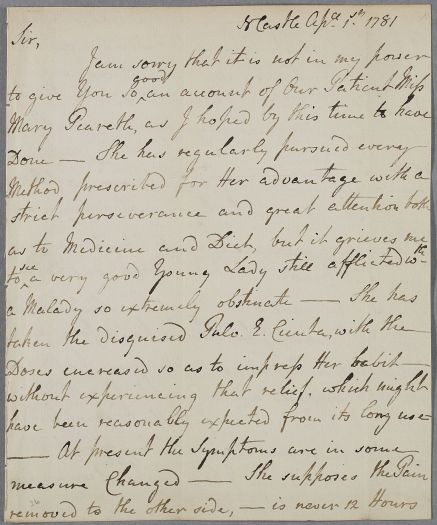 NCastle Apl. 1st. 1781
Sir,
I am sorry that it is not in my power
to give You so good an account of Our Patient Miss
Mary Peareth, as I hoped by this time to have
Done — She has regularly pursued every
Method prescribed for Her advantage with a
strict perseverance and great attention both
as to Medicine and Diet, but it grieves me
to see a very good Young Lady still afflicted wth
a Malady so extremely obstinate — She has
taken the disguised Pulv. E. Cicuta, with the
Doses encreased so as to impress Her habit
without experiencing that relief, which might
have been reasonably expected from its long use
— At present the Symptoms are in some
measure Changed — She supposes the Pain
removed to the other side, — is never 12 Hours